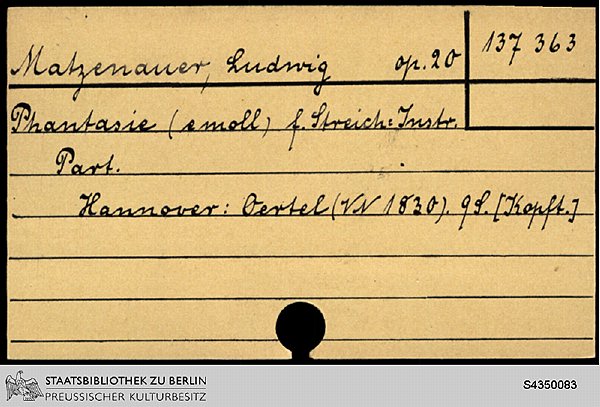 Matzenauer, Ludwig op. 20 137 363
Phantasie (emoll) f. Streich=Instr.
Part.
Hannover: Oertel (VN 1830). 9 S. [Kopft.]
STAATSBIBLIOTHEK ZU BERLIN
PREUSSISCHER KULTURBESITZ
S4350083